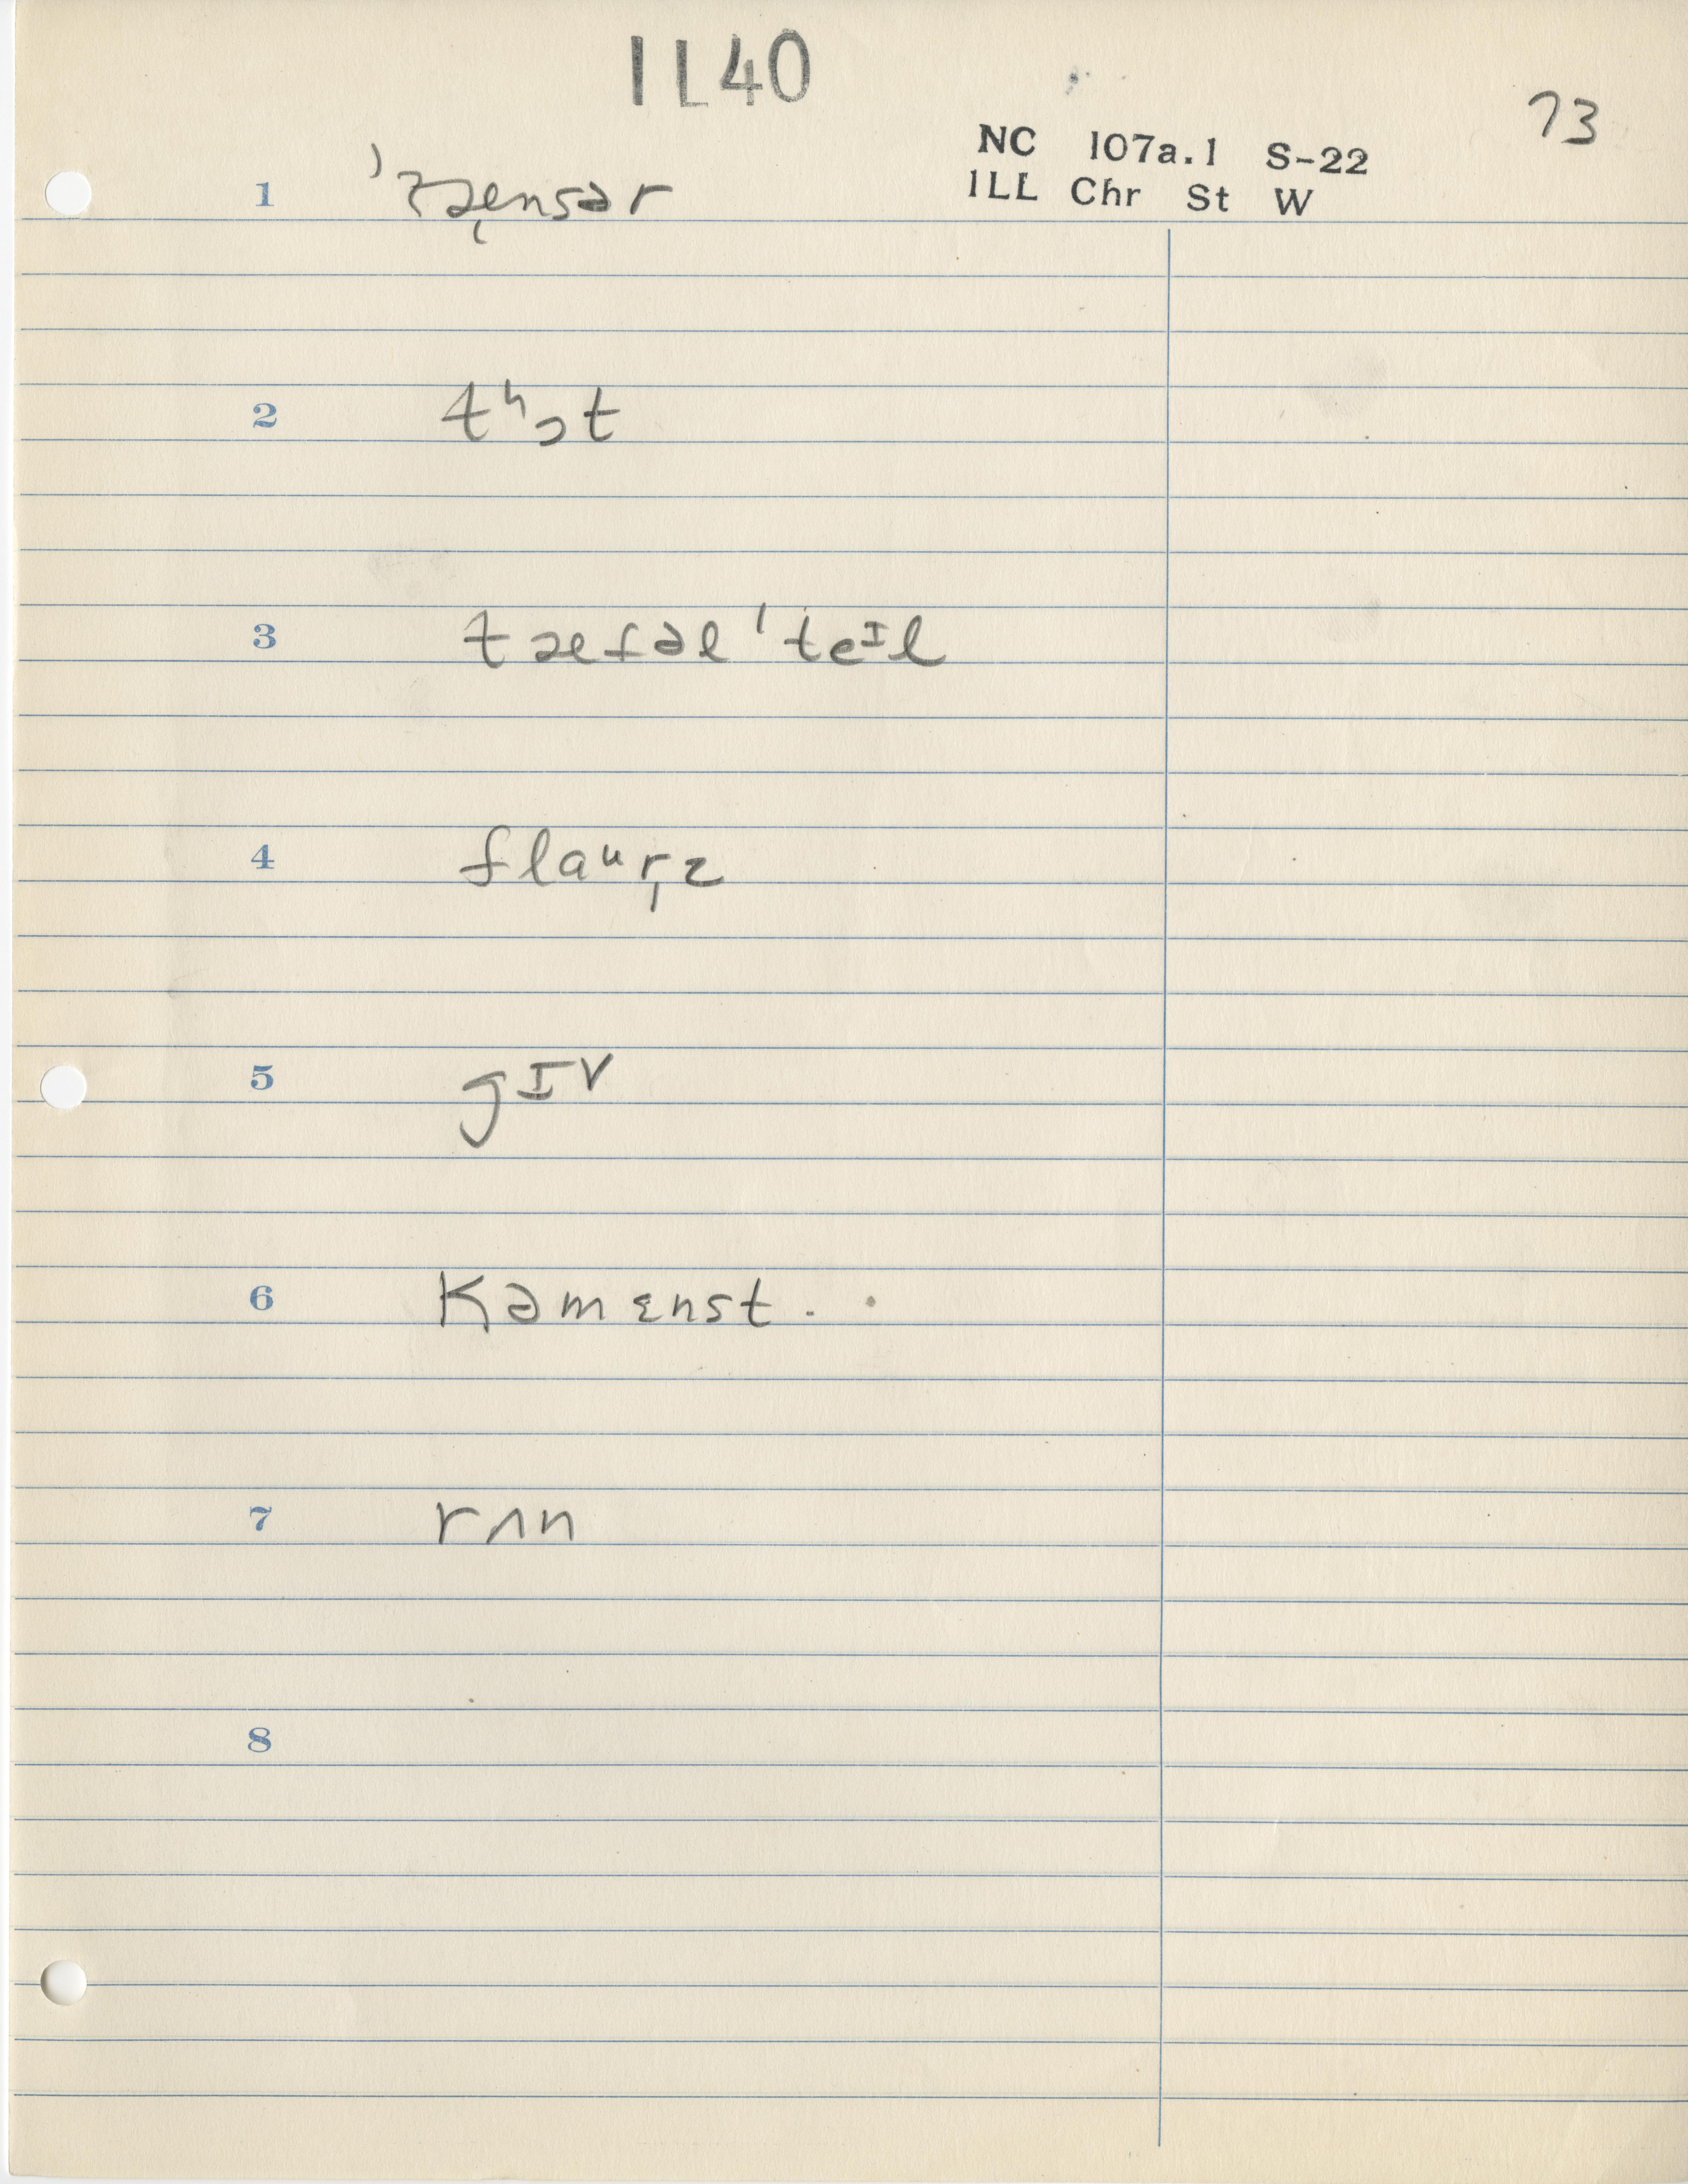 1140
73
NC 107a.1 S-22
ILL Chr St W
1 ˈʔæ̜nsər
2 tʰɔt
3 tæfəlˈteᴵl
4 flaᵘr̩z
5 gɪv
6 Kəmɛnst.
7 rʌn
8